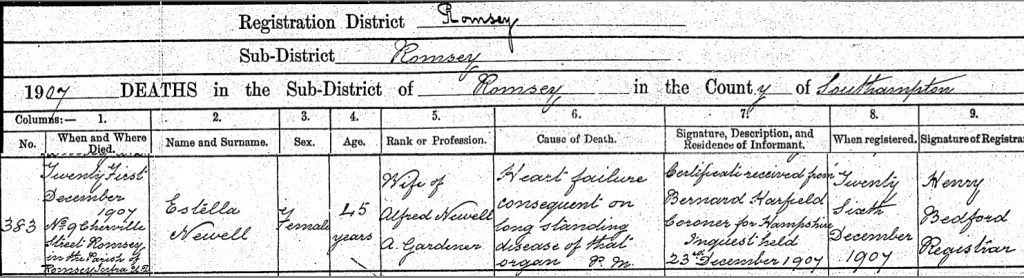 Registration District Romsey
Sub-District Romsey
1907 DEATHS in the Sub-District of Romsey in the County of Southampton
Columns:— 1. 2. 3. 4. 5. 6. 7. 8. 9.
No. When and Where Died. Name and Surname. Sex. Age. Rank or Profession. Cause of Death. Signature, Description, and Residence of Informant. When registered. Signature of Registrar
383
Twenty First
December
1907
No 9 Cherville
Street Romsey
in the Parish of
Romsey
Estella
Newell
Female
45
years
Wife of
Alfred Newell
A. Gardener
Heart failure
consequent on
long standing
disease of that
organ P.M.
Certificate received from
Bernard Harfield
Coroner for Hampshire
Inquest held
23rd December 1907
Twenty
Sixth
December
1907
Henry
Bedford
Registrar